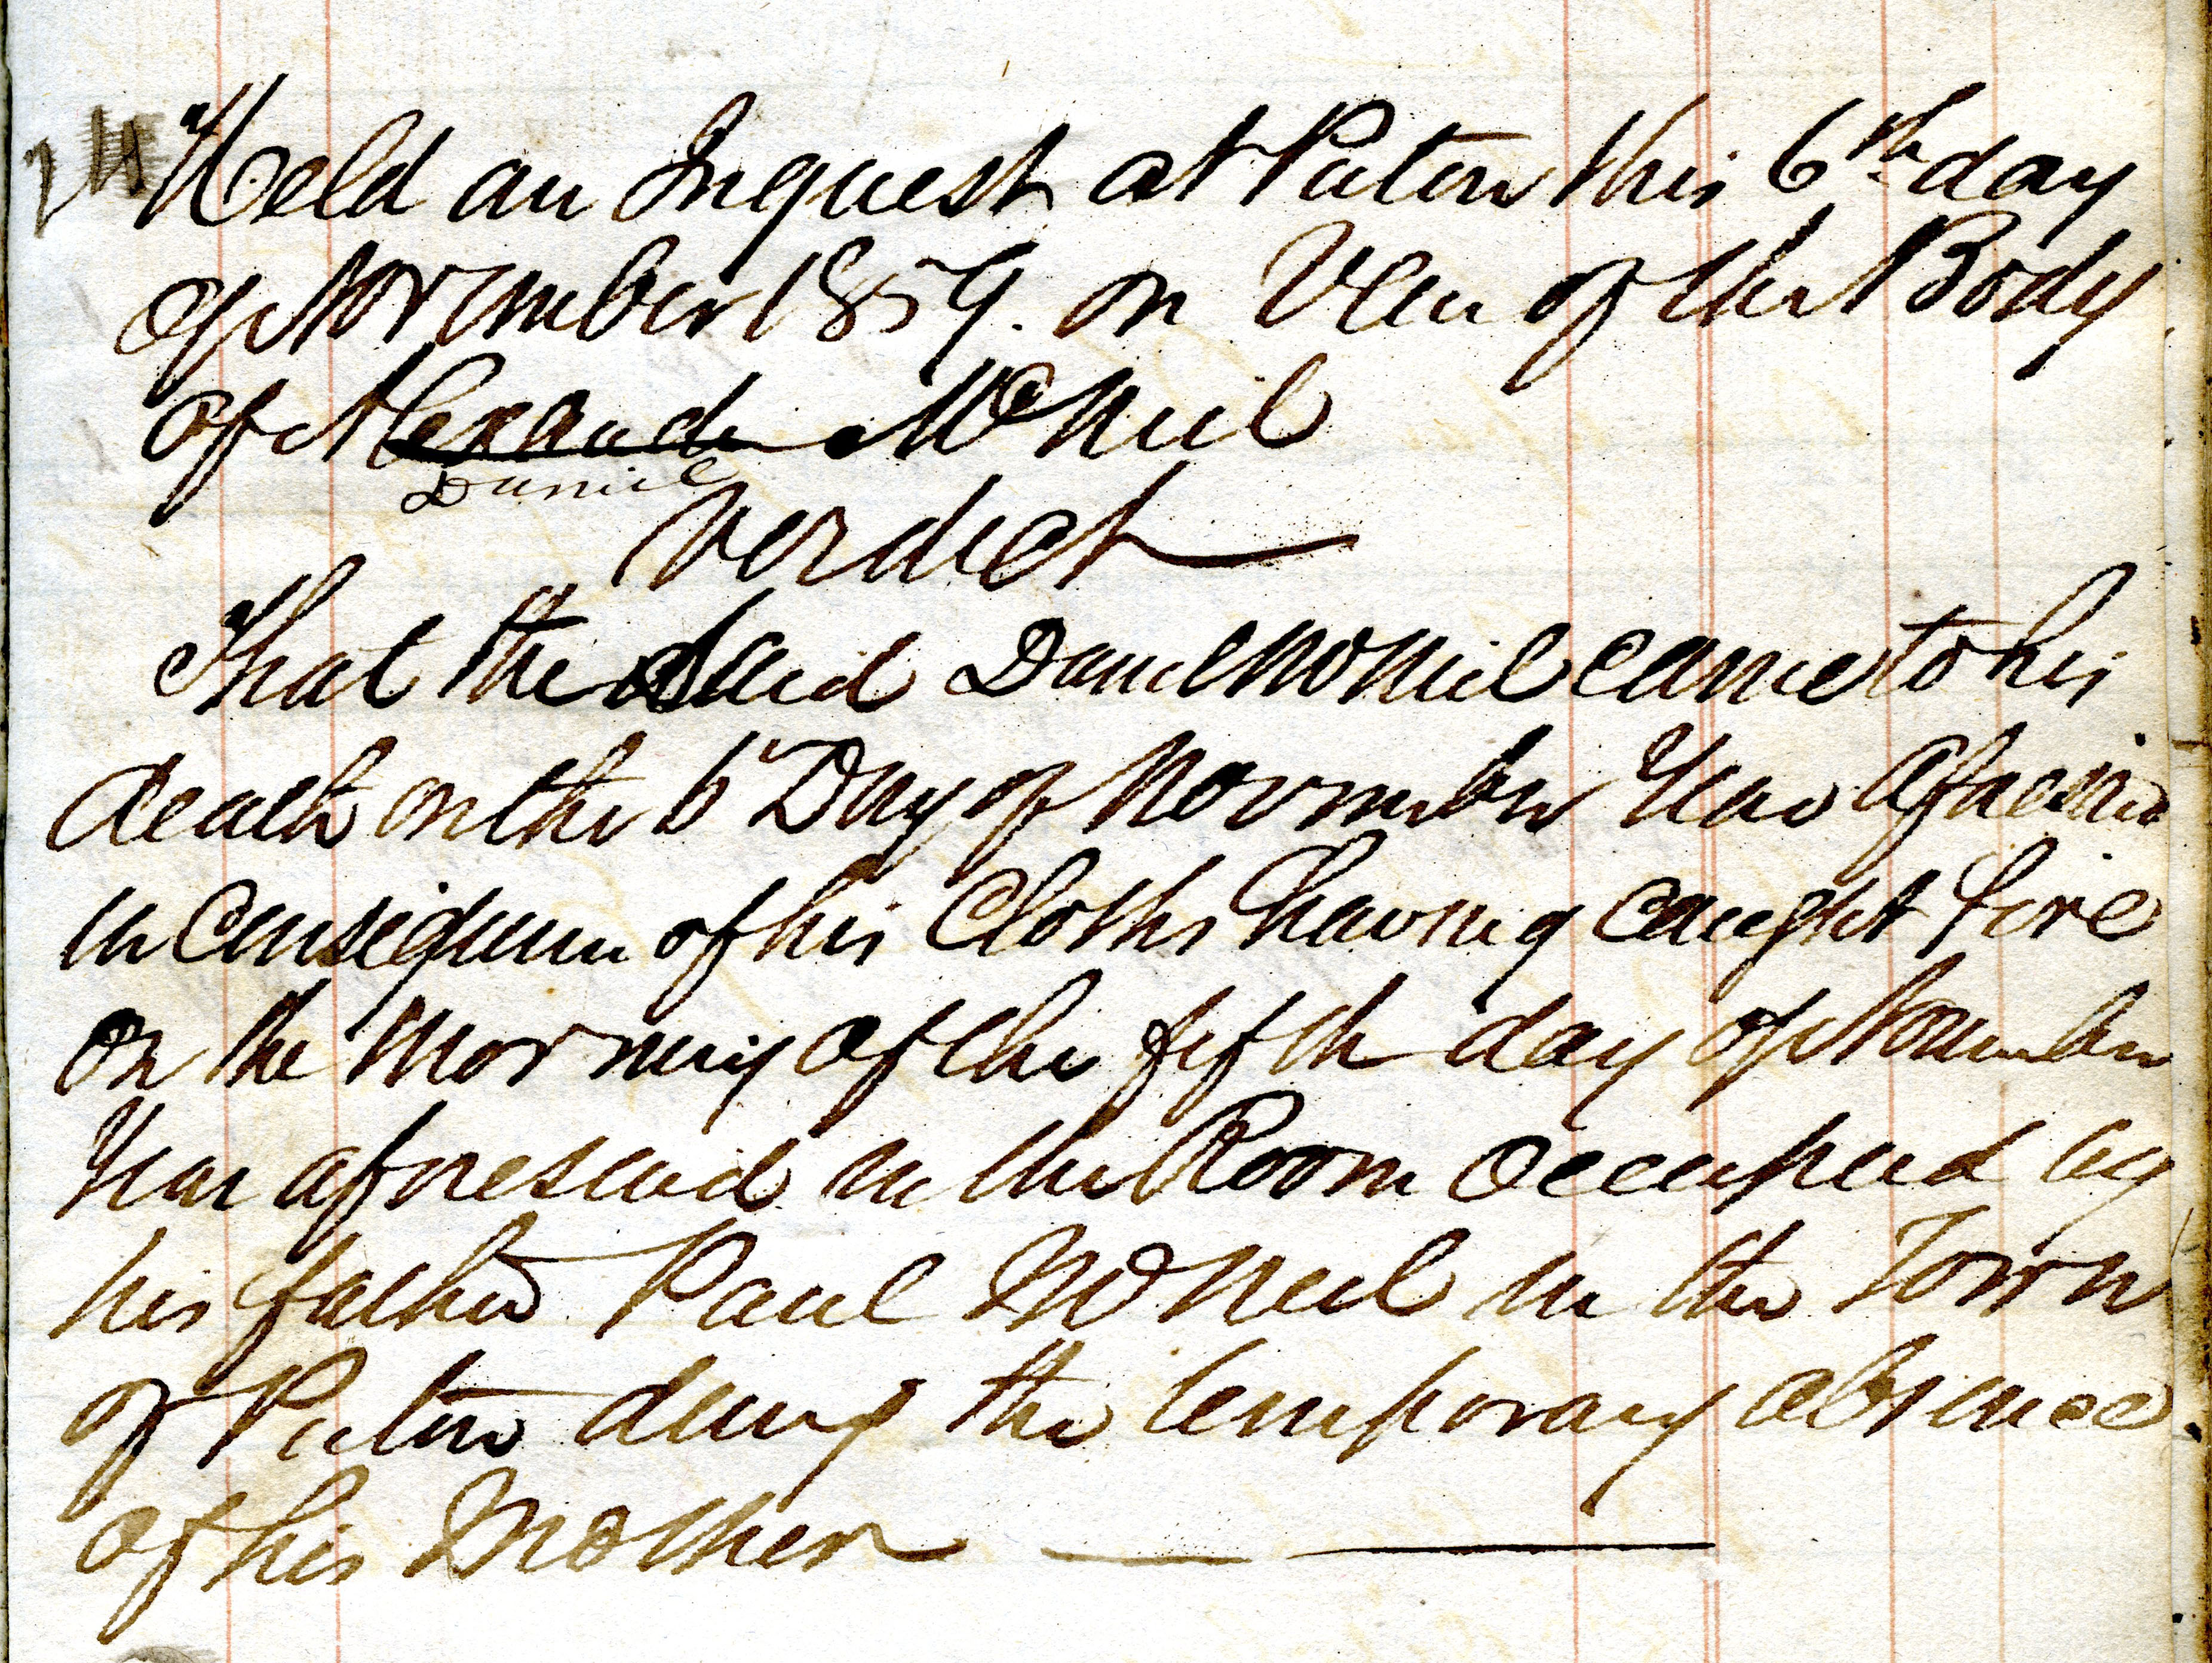 Held an Inquest at Picton this 6th day
of November 1859. on View of the Body
of Alexander McNeil
Daniel
Verdict
That the Said Daniel McNeil came to his
death on the 6th Day of November Year aforesaid
in Consequence of his Cloths having caught fire
on the Morning of the fifth day of November
Year aforesaid in the Room Occupied by
his father Paul McNeil in the Town
of Picton during the temporary absence
of his Mother